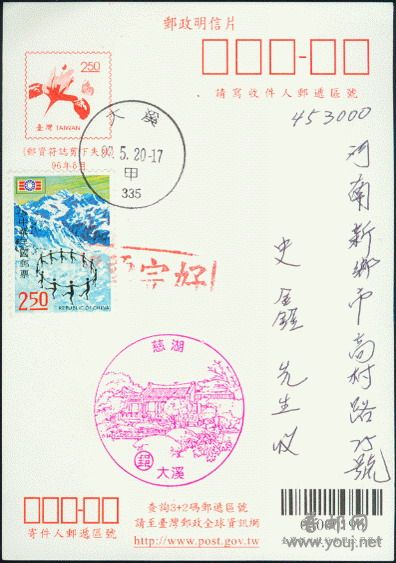 郵政明信片
2.50
臺灣 TAIWAN
(郵資符誌剪下失效)
96年8月
請寫收件人郵遞區號
453000
大溪
5.20-17
甲
335
中華民國郵票
2.50
REPUBLIC OF CHINA
字好
河南新鄉市高村路75號
先生收
慈湖
郵
大溪
寄件人郵遞區號
查詢3+2碼郵遞區號
請至臺灣郵政全球資訊網
http://www.post.gov.tw
www.youj.net